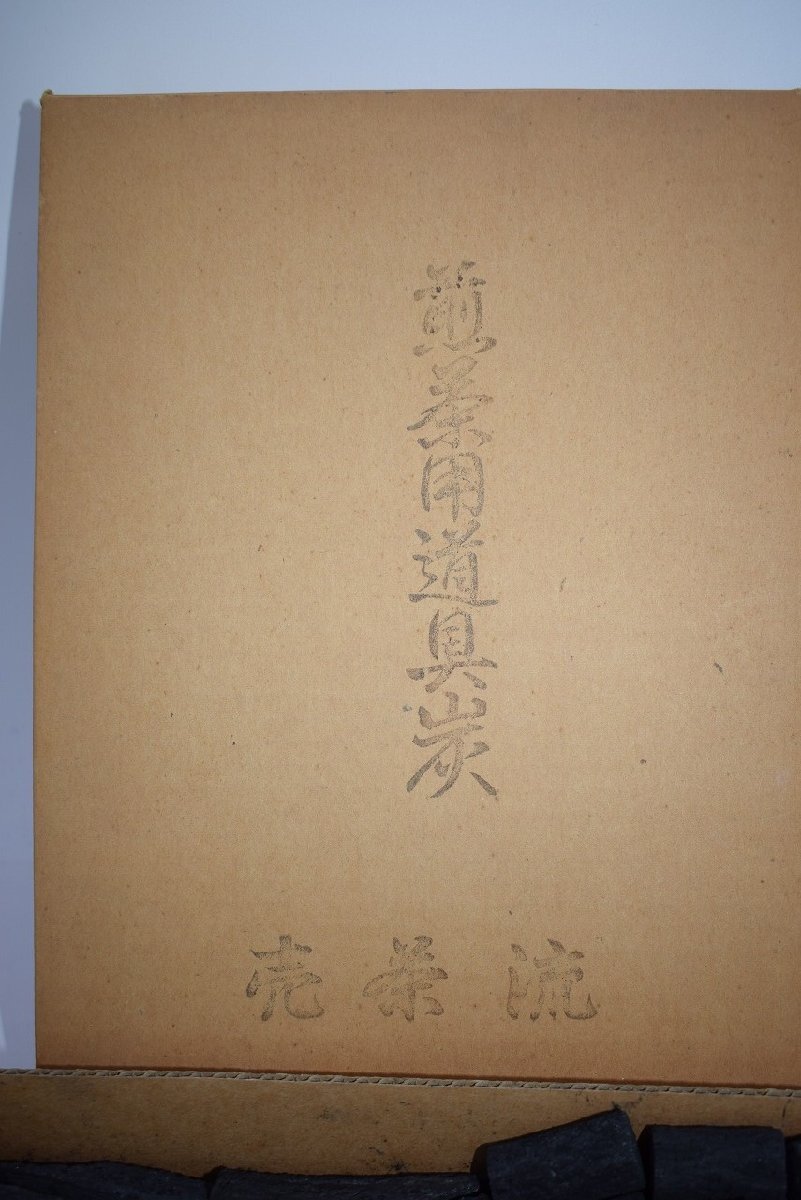 煎茶用道具炭
売茶流